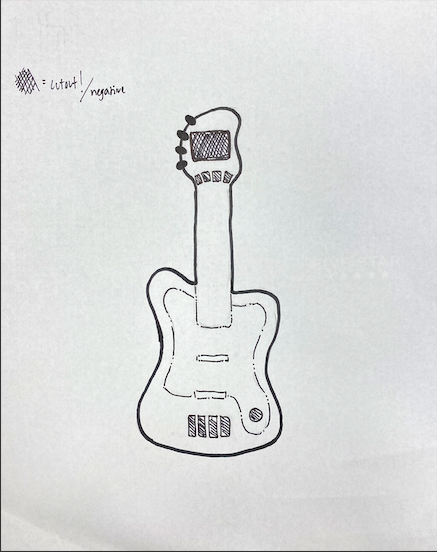 = cutout! / negative